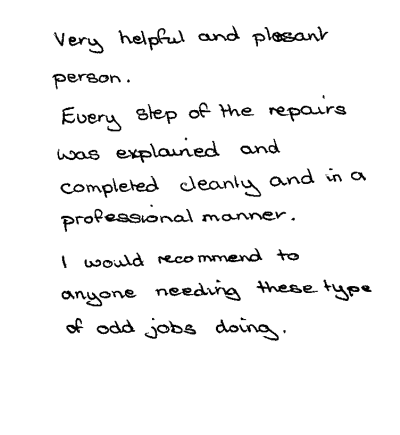 Very helpful and plesant
person.
Every step of the repairs
was explained and
completed cleanly and in a
professional manner.
I would recommend to
anyone needing these type
of odd jobs doing.